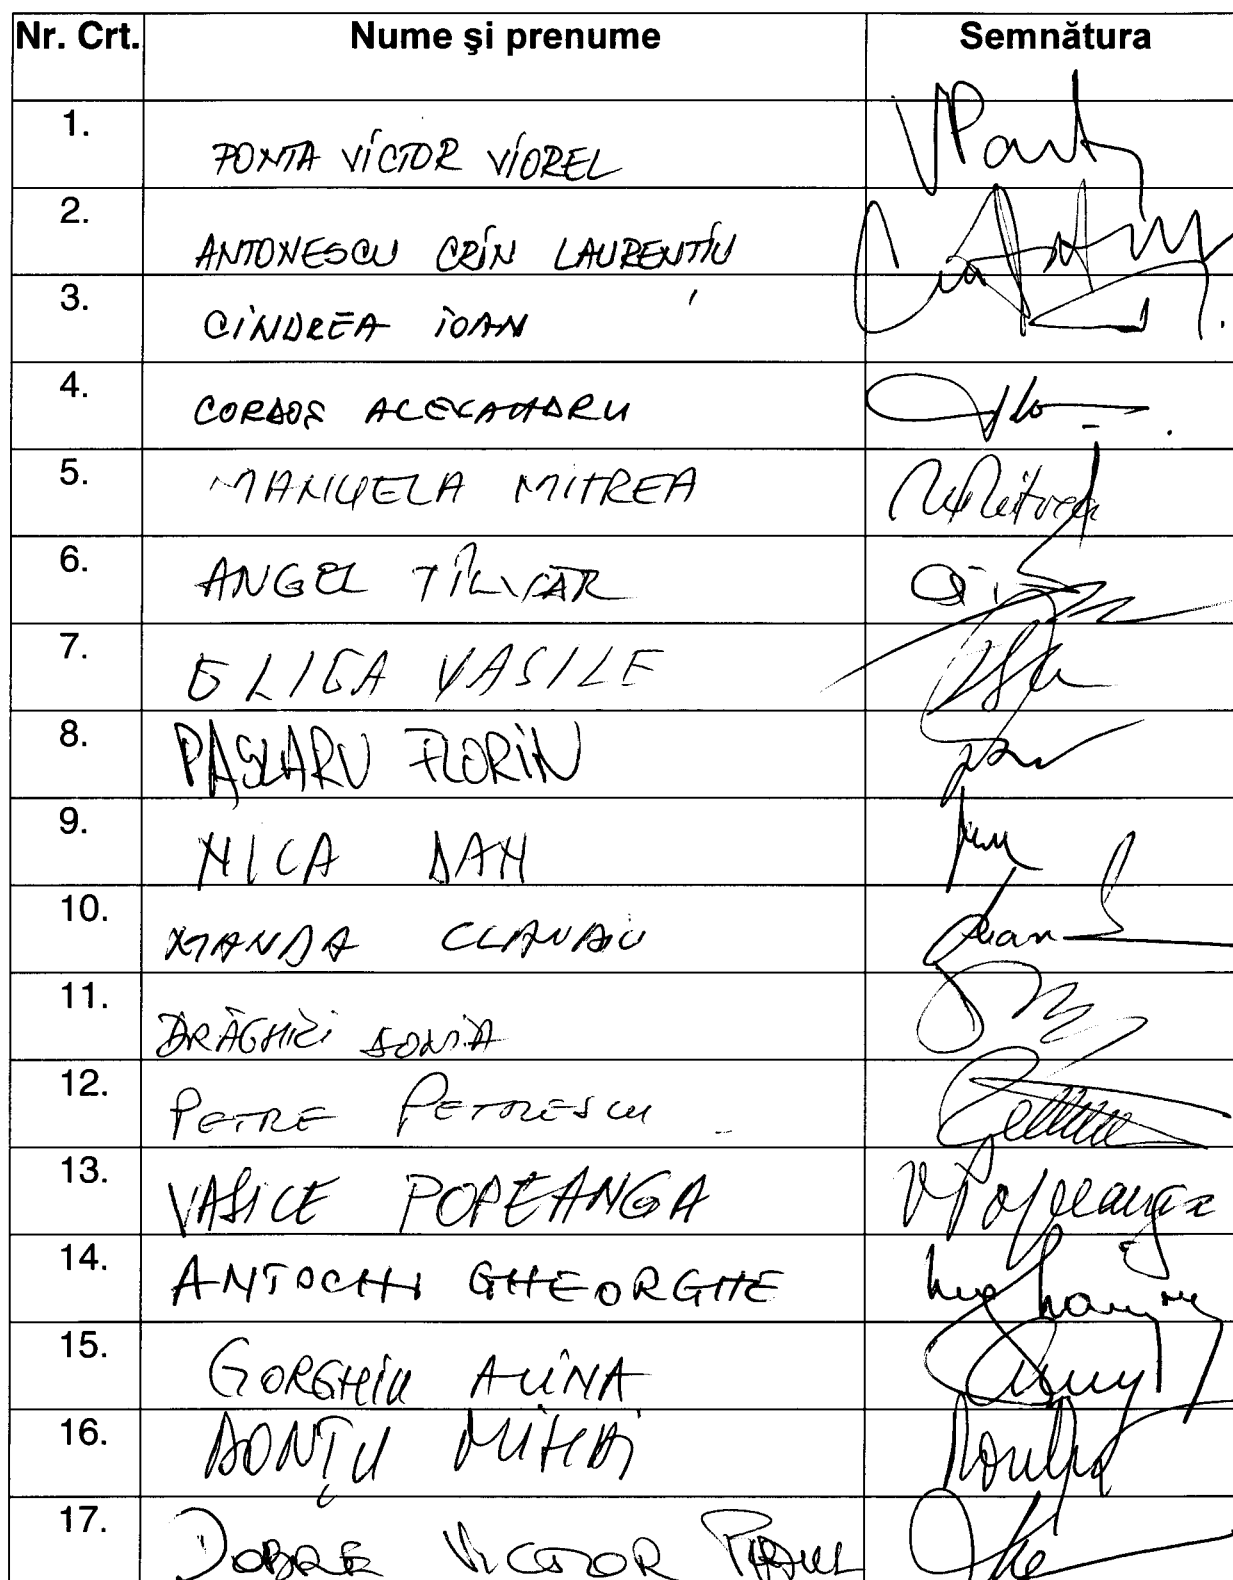 Nr. Crt. Nume şi prenume Semnătura
1. PONTA VICTOR VIOREL
2. ANTONESCU CRIN LAURENTIU
3. CINDREA IOAN
4. CORDOŞ ALEXANDRU
5. MANUELA MITREA
6. ANGEL TÎLVĂR
7. GLIGA VASILE
8. PÂSLARU FLORIN
9. NICA DAN
10. MANDA CLAUDIU
11. DRĂGHICI SONIA
12. PETRE PETRESCU
13. VASILE POPEANGA V Popeanga
14. ANTOCHI GHEORGHE
15. GORGHIU ALINA
16. DONŢU MIHAI
17. DOBRE VICTOR PAUL